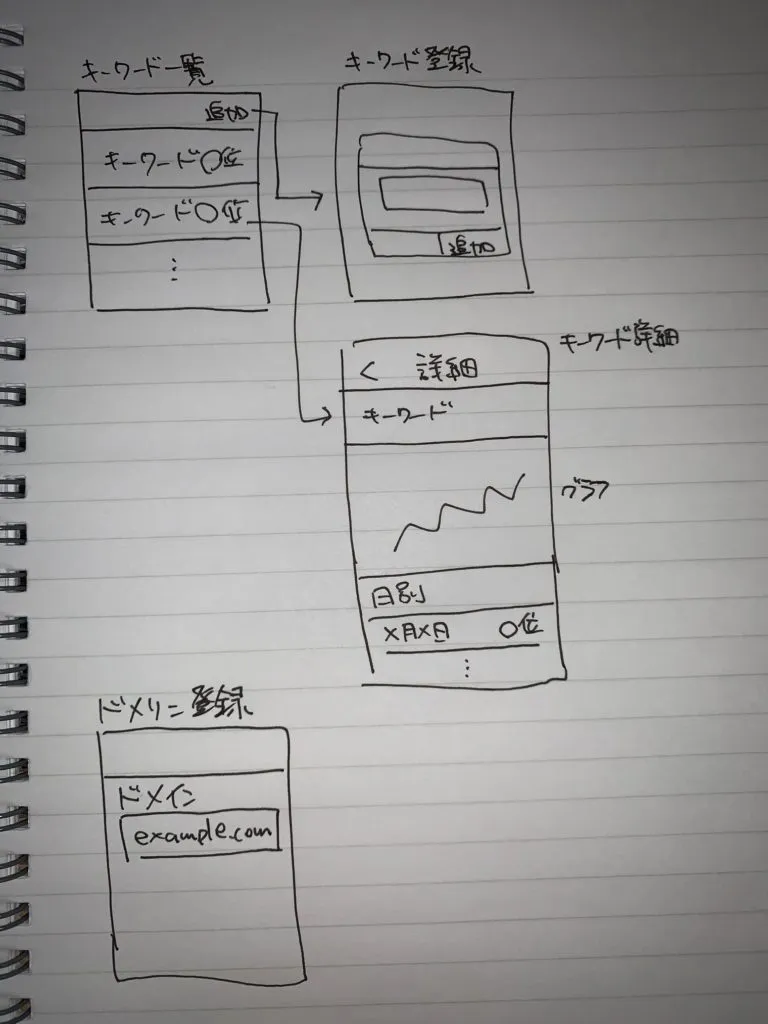 キーワード一覧
追加
キーワード〇位
キーワード〇位
⋮
キーワード登録
追加
キーワード詳細
< 詳細
キーワード
グラフ
日別
×月×日 〇位
⋮
ドメイン登録
ドメイン
example.com